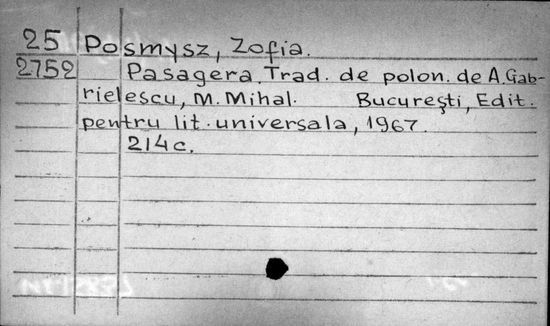 25 Posmysz, Zofia.
2752 Pasagera. Trad. de polon. de A. Gab-
rielescu, M. Mihal. Bucureşti, Edit.
pentru lit. universala, 1967.
214 c.